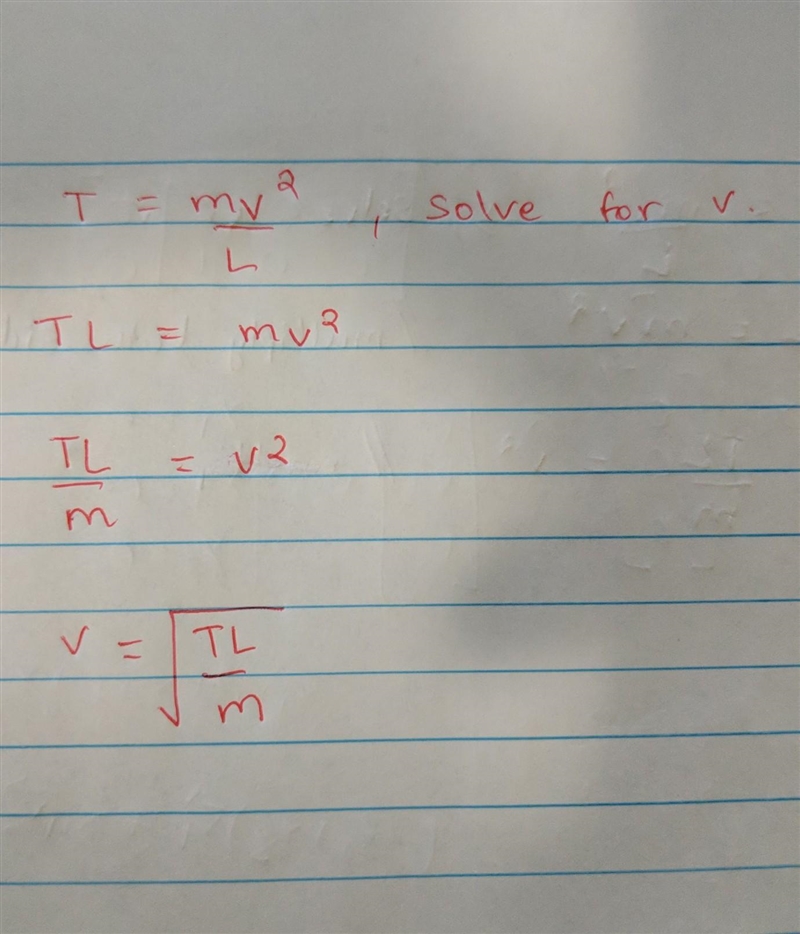 T = mv²/L , solve for v.
TL = mv²
TL/m = v²
v = √(TL/m)